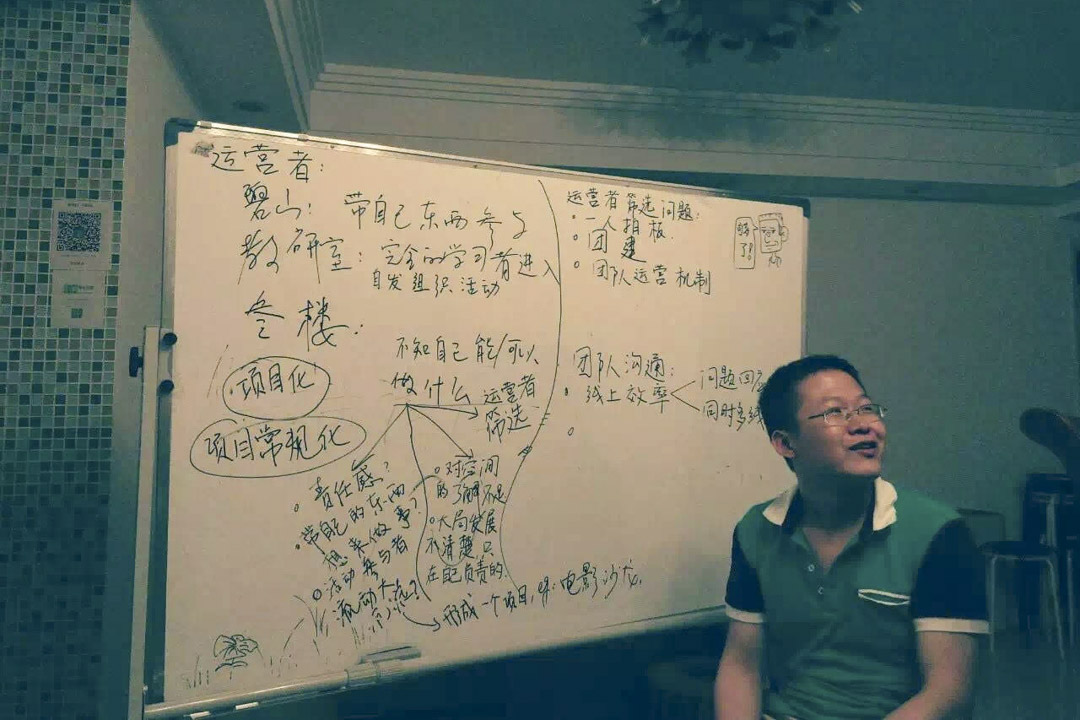 运营者:
碧山: 带自己东西参与
教研室: 完全的学习者进入
自发组织活动
叁楼:
不知自己能/可以
做什么
运营者
筛选
项目化
项目常规化
。责任感?
·带自己的东西
想来做事?
○活动参与者
流动大
。对空间
的了解不足
。大局发展
不清楚,只
在自己负责的
形成一个项目,
电影沙龙.
运营者筛选问题:
。一人拍板
。团建
。团队运营机制
够
了!
团队沟通:
· 线上效率
问题回
同时多线